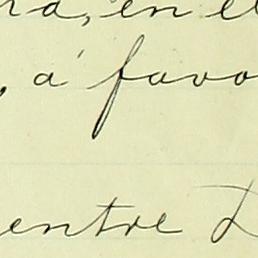 ra, en el
, á favo
entre D